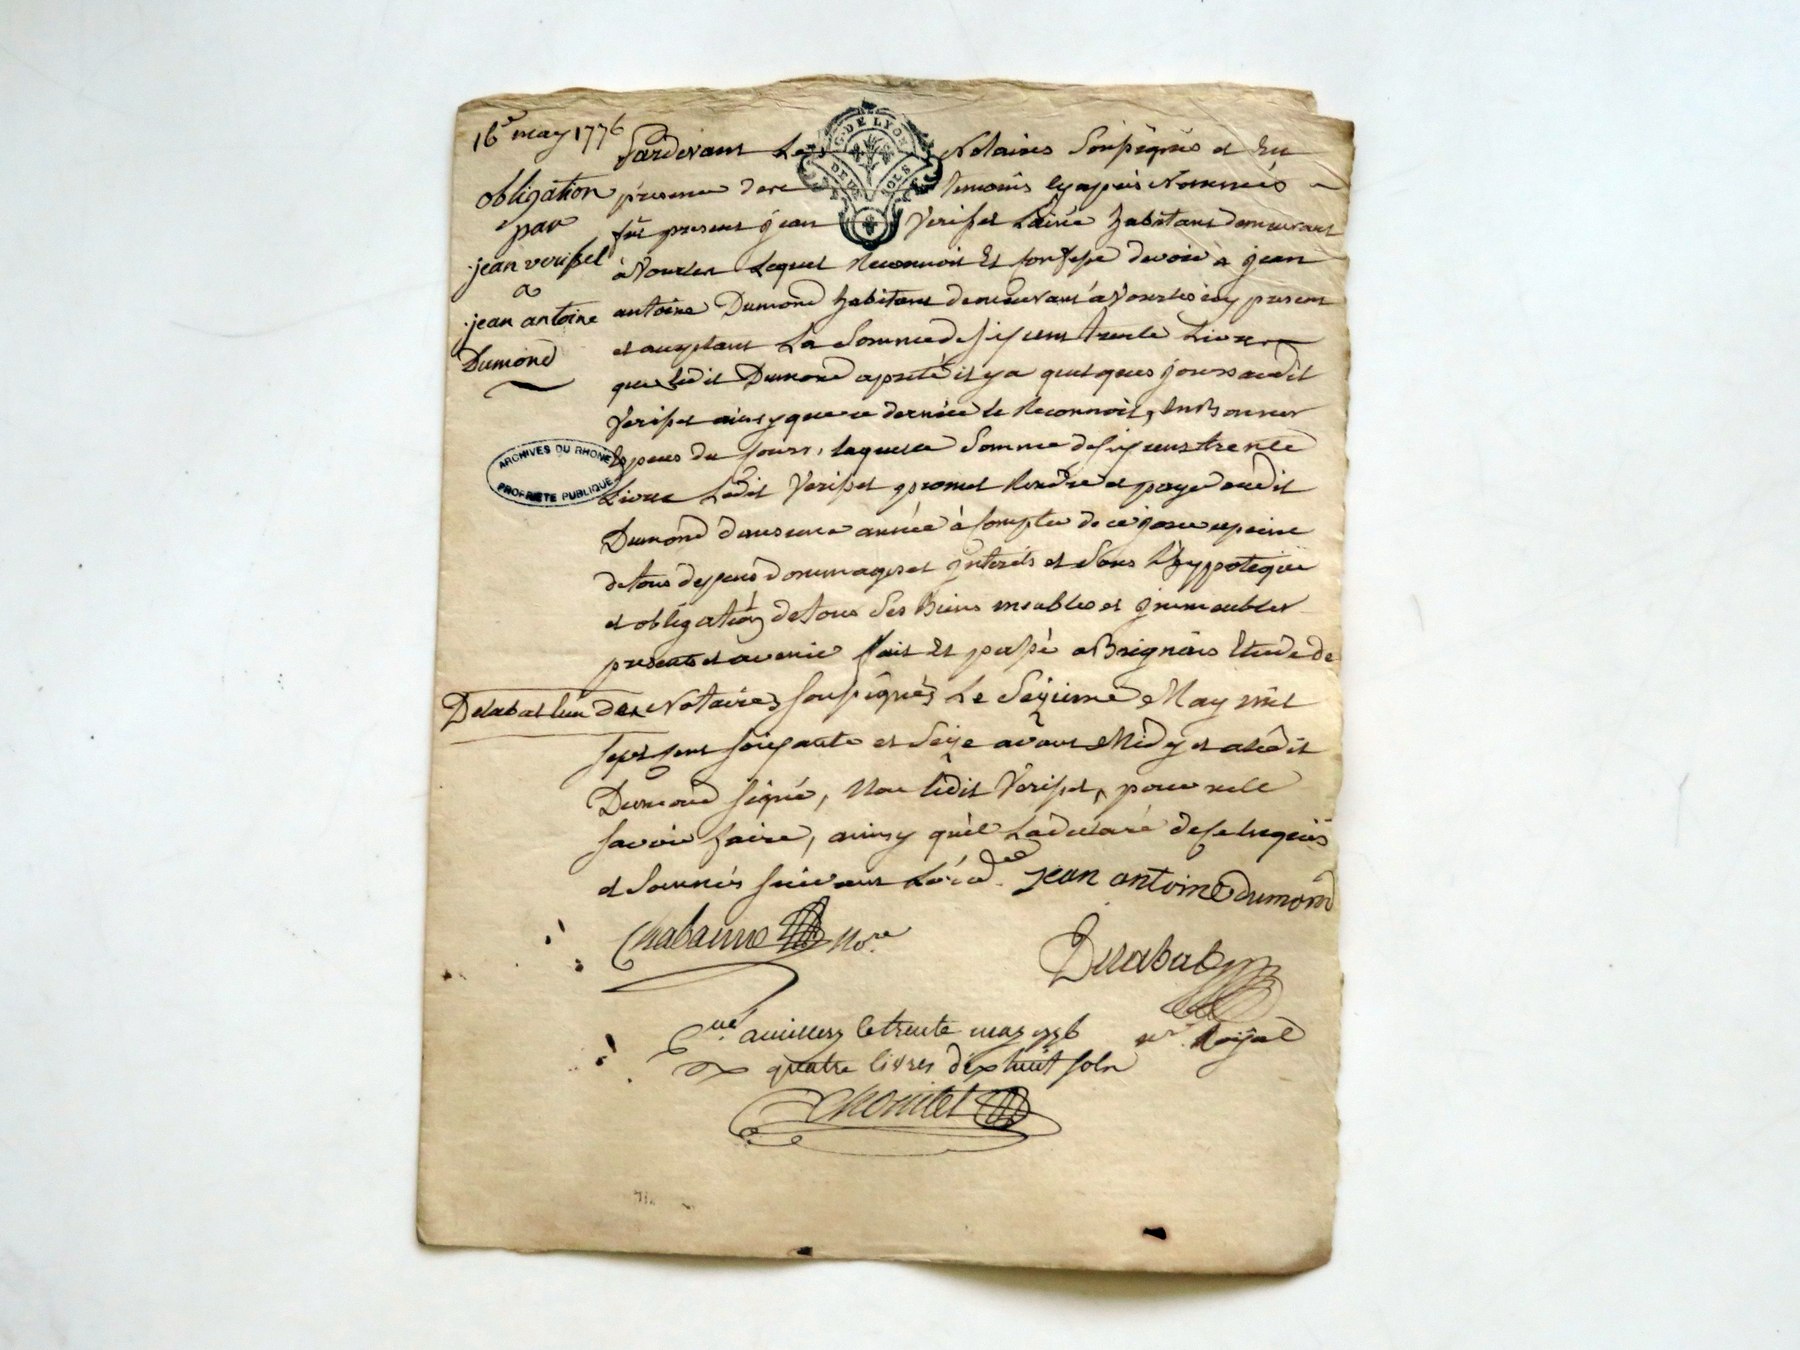 16e may 1776
obligation
par
jean verissel
a
jean antoine
Dumond
G. DE LYON
DEUX SOLS
Pardevant Les Notaires soussignés et En
presence des temoins cy apres Nommés
fut present jean Verissel Lainé habitant demeurant
à Vourles Lequel Reconnoit Et confesse devoir à jean
antoine Dumond habitant demeurant à Vourles icy present
et acceptant La Somme de six cent trente Livres
que Ledit Dumond a preté il y a quelques jours audit
Verissel ainsy que ce dernier le Reconnoit,
du jours, laquelle Somme de six cens trente
Livres Ledit Verissel promet Rendre et payer audit
Dumond dans une année à compter de ce jour a peine
de tous depens dommages et interets et sous L'hypoteque
et obligation de tous ses Biens meubles et immeubles
presents et avenir fait Et passé a Brignais Etude de
Delabat l'un des Notaires soussignés Le Seizieme May mil
sept cent soixante et seize avant Midy et a ledit
Dumond signé, Non ledit Verissel, pour ne le
savoir faire, ainsy qu'il La declaré de ce Enquis
et sommés suivant L'ord.ce jean antoine dumond
Chabanne No.re
Delabat
n.re Royal
le trente may 1776
quatre livres dix huit sols
ARCHIVES DU RHONE
PROPRIETE PUBLIQUE